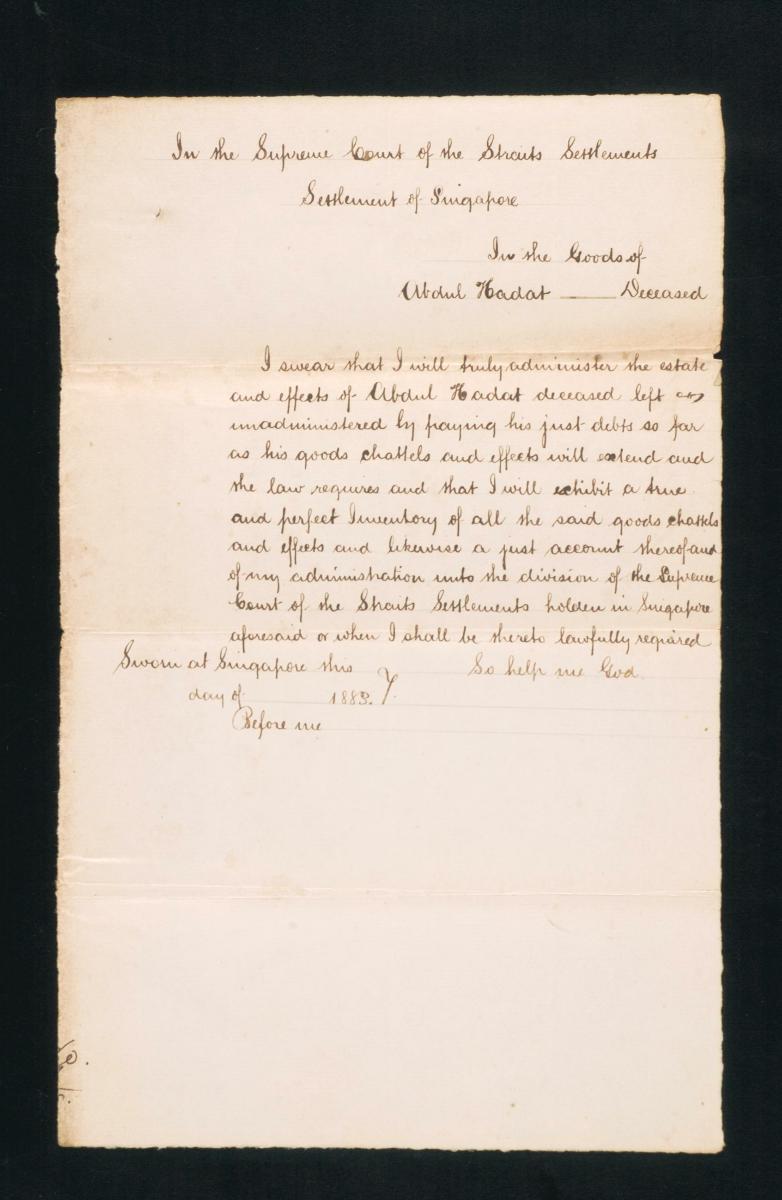 In the Supreme Court of the Straits Settlements
Settlement of Singapore
In the Goods of
Abdul Kadat ——— Deceased
I swear that I will truly administer the estate
and effects of Abdul Kadat deceased left
unadministered by paying his just debts so far
as his goods chattels and effects will extend and
the law requires and that I will exhibit a true
and perfect Inventory of all the said goods chattels
and effects and likewise a just account thereof and
of my administration unto the division of the Supreme
Court of the Straits Settlements holden in Singapore
aforesaid or when I shall be thereto lawfully required
Sworn at Singapore this So help me God.
day of 1883.
Before me